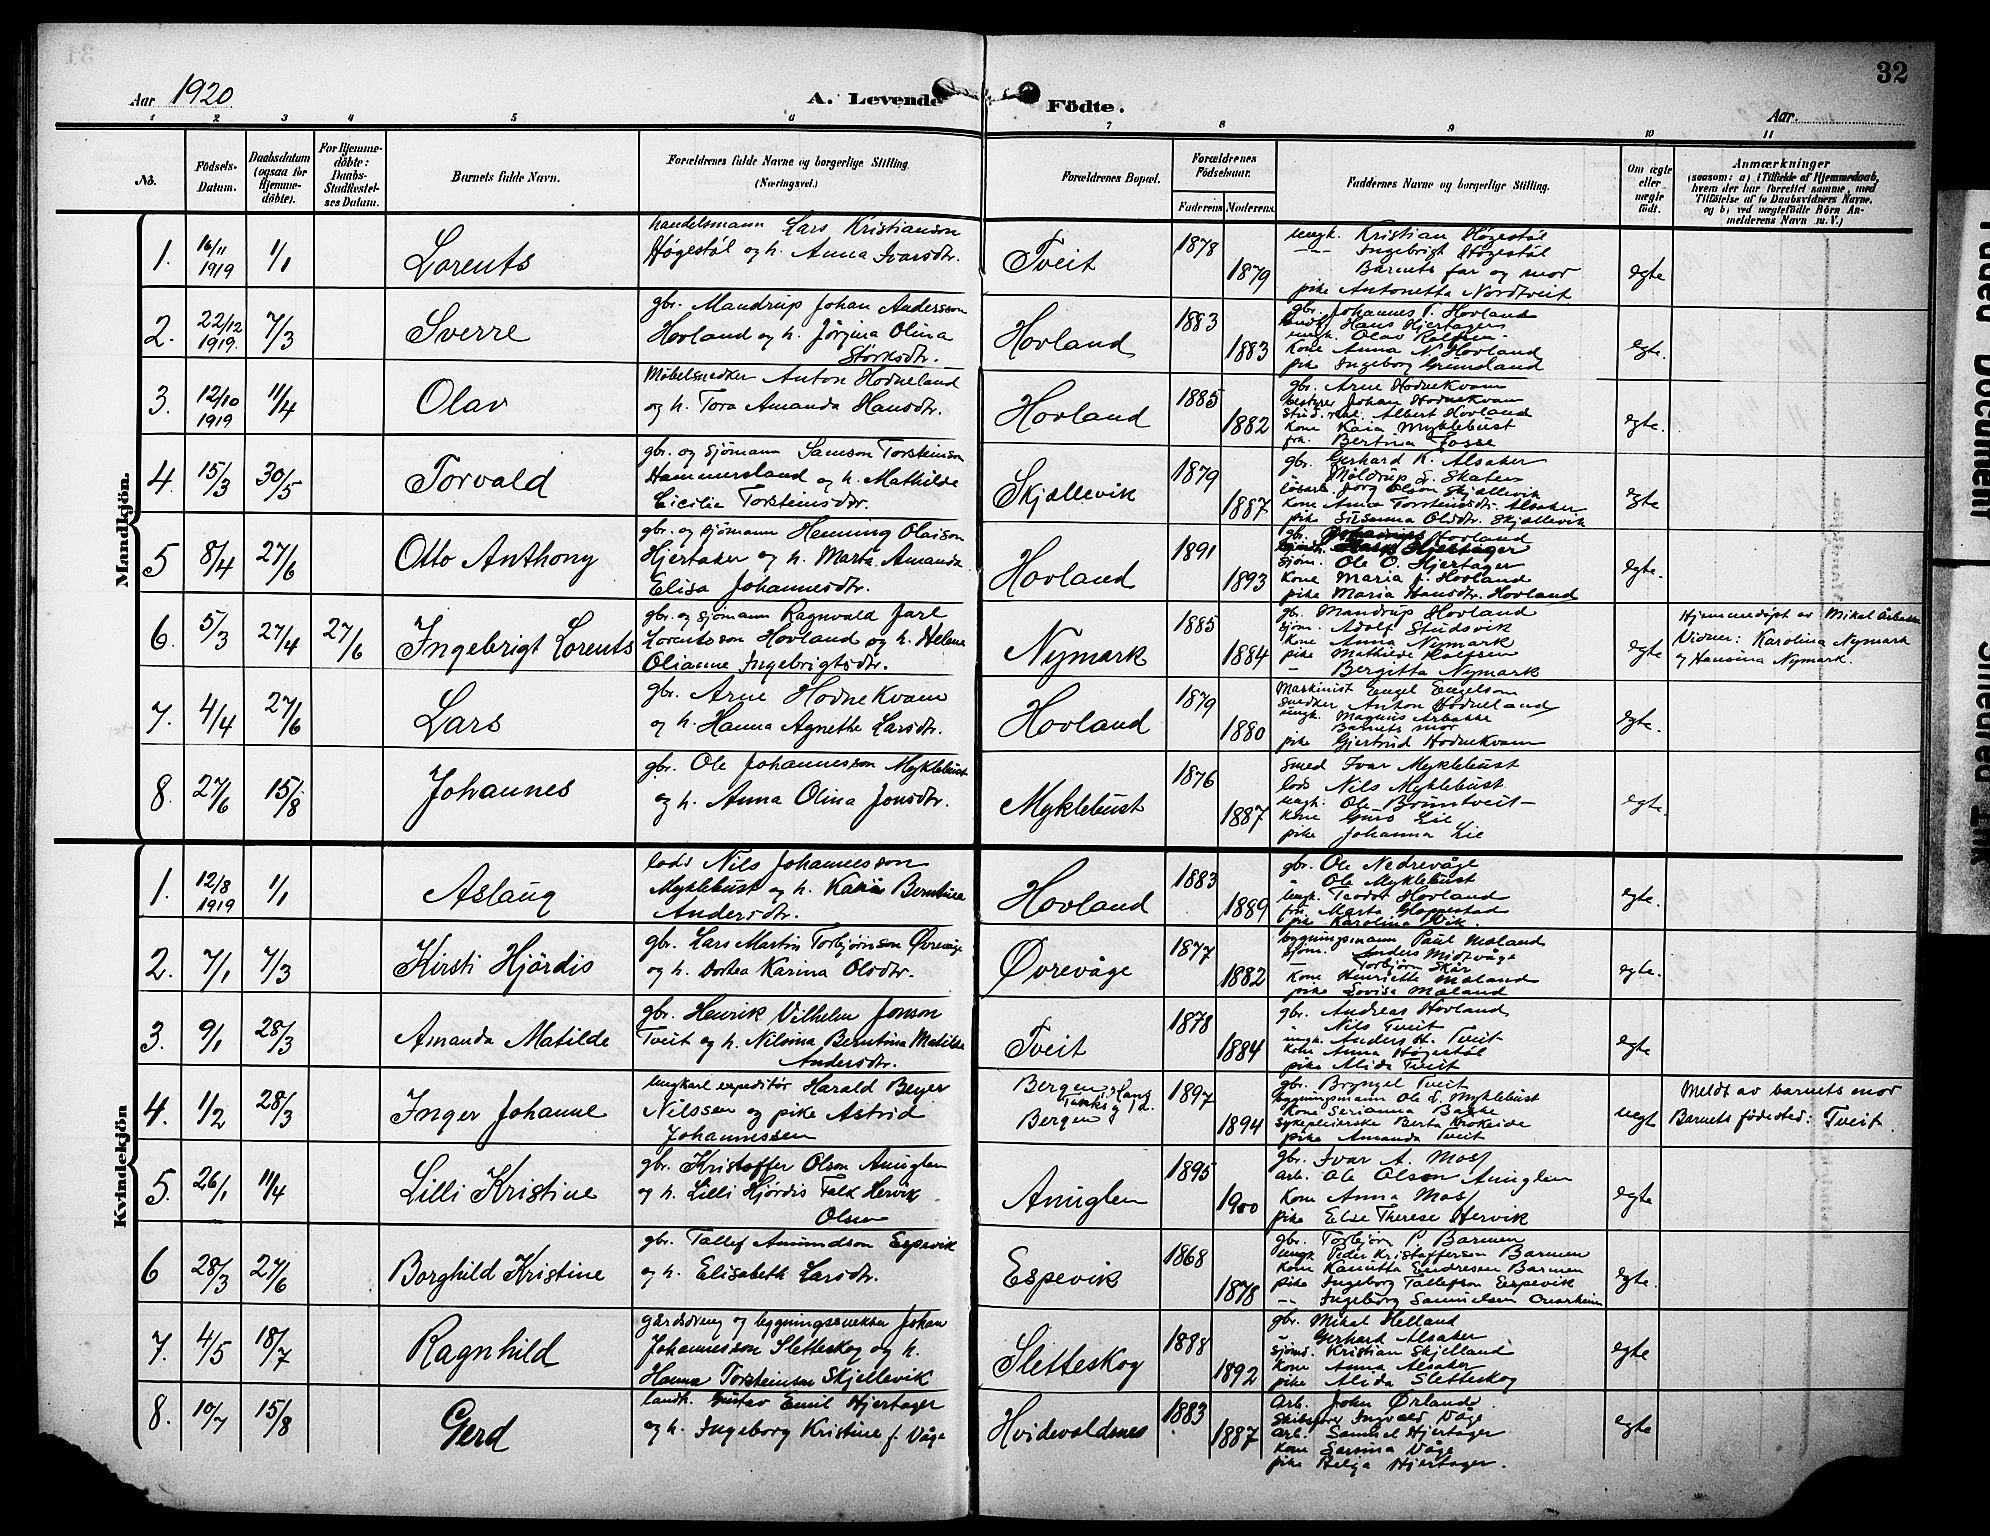 32
Aar 1920
A. Levende Födte.
Aar.
1 2 3 4 5 6 7 8 9 10 11
No.
Födsels-Datum.
Daabsdatum (ogsaa for Hjemme-döbte).
For Hjemme-döbte: Daabs-Stadfæstel-ses Datum.
Barnets fulde Navn.
Forældrenes fulde Navne og borgerlige Stilling.
(Næringsvei.)
Forældrenes Bopæl.
Forældrenes Födselsaar.
Faderens Moderens
Faddernes Navne og borgerlige Stilling.
Om ægte eller uægte födt.
Anmærkninger
(saasom: a) i Tilfælde af Hjemmedaab,
hvem der har forrettet samme, med
Tilföielse af to Daabsvidners Navne,
og b) ved uægtefödte Börn An-
melderens Navn m. V.)
Mandkjön.
1. 16/11 1919 1/1 Lorents
Handelsmann Lars Kristianson
Høgestøl og h. Anna Ivarsdtr.
Tveit 1878 1879
ungk. Kristian Høgestøl
Ingebrigt Høgestøl
Barnets far og mor
pike Antonetta Nordtveit
egte
2. 22/12 1919. 7/3 Sverre
gbr. Mandrup Johan Anderson
Hovland og h. Jørgina Olina
Størksdtr.
Hovland 1883 1883
gbr. Johannes T. Hovland
Hans Hjertager
ungk. Olav Rolfsen
Kone Anna N. Hovland
pike Ingeborg Grünland
egte.
3. 12/10 1919 11/4 Olav
Møbelsnedker Anton Hodneland
og h. Tora Amanda Hansdtr.
Hovland 1885 1882
gbr. Arne Hodnekvam
bestyrer Johan Hodnekvam
Albert Hovland
Kone Kaia Myklebust
frk. Bertina Fosse
egte.
4. 15/3 30/5 Torvald
gbr. og sjömann Samson Torsteinson
Hammersland og h. Mathilde
Cicilie Torsteinsdtr.
Skjællevik 1879 1887
gbr. Gerhard K. Alsaker
Möldrup S. Skaten
Jørg Olson Skjællevik
Kone Anna Torsteinsdtr. Alsaker
pike Susanna Olsdtr. Skjællevik
egte
5 8/4 27/6 Otto Anthony
gbr. og sjömann Henning Olaison
Hjertaker og h. Marta Amanda
Elisa Johannesdtr.
Hovland 1891 1893
gbr. Johannes Hovland
Hjertager
sjöm. Ole O. Hjertager
Kone Maria J. Hovland
pike Maria Hansdtr. Hovland
egte.
6. 5/3 27/4 27/6 Ingebrigt Lorents
gbr. og sjömann Ragnvald Jarl
Lorentsson Hovland og h. Helene
Olianne Ingebrigtsdtr.
Nymark 1885 1884
gbr. Mandrup Hovland
sjöm. Adolf Studsvik
Kone Anna Nymark
pike Mathilde Rolfsen
" Bergitta Nymark
egte
Hjemmedöpt av Mikal Arbakke
Vidner: Karolina Nymark
og Hansina Nymark.
7. 4/4 27/6 Lars
gbr. Arne Hodnekvam
og h. Hanna Agnethe Larsdtr.
Hovland 1879 1880
Maskinist Engel Engelson
Snedker Anton Hodneland
ungk. Magnus Arbakke
Barnets mor
pike Gjertrud Hodnekvam
egte.
8. 27/6 15/8 Johannes
gbr. Ole Johannesson Myklebust
og h. Anna Olina Jonsdtr.
Myklebust 1876 1887
Smed Ivar Myklebust
lods Nils Myklebust
ungk. Ole Brüntveit
Kone Guro Lie
pike Johanna Lie
egte.
Kvindekjön
1. 12/8 1919 1/1 Aslaug
lods Nils Johannesson
Myklebust og h. Kaia Berntine
Andersdtr.
Hovland 1883 1889
gbr. Ole Nedrevåge
" Ole Myklebust
ungk. Teodor Hovland
fru Marta Gloppestad
pike Karolina Vik
egte.
2. 7/1 7/3 Kirsti Hjördis
gbr. Lars Martin Torbjörnson Øvrevåge
og h. Dortea Karina Olsdtr.
Øvrevåge 1877 1882
bygningsmann Paul Måland
sjöm. Anders Midtvåge
Torbjörn Skår
Kone Henriette Måland
pike Lovisa Måland
egte.
3. 9/1 28/3 Amanda Matilde
gbr. Henrik Vilhelm Jonson
Tveit og h. Nilsina Berntina Matilde
Andersdtr.
Tveit 1878 1884
gbr. Andreas Hovland
" Nils Tveit
ungk. Anders H. Tveit
Kone Anna Høgestøl
pike Alida Tveit
egte
4. 1/2 28/3 Inger Johanne
Ungkarl expeditör Harald Beyer
Nilssen og pike Astrid
Johannessen
Bergen
Bergen
1897 1894
gbr. Brynjel Tveit
bygningsmann Ole L. Myklebust
Kone Serianna Bakke
Sykepleierske Berta Krokeide
pike Amanda Tveit
uegt
Meldt av barnets mor
Barnets födested: Tveit.
5. 26/1 11/4 Lilli Kristine
gbr. Kristoffer Olson Anuglen
og h. Lilli Hjördis Falk Hervik
Olsen
Anuglen 1895 1900
gbr. Ivar A. Mos
Arb. Ole Olson Anuglen
Kone Anna Mos
pike Else Therese Hervik
egte
6 28/3 27/6 Borghild Kristine
gbr. Tallef Amundson Espevik
og h. Elisabeth Larsdtr.
Espevik 1868 1878
gbr. Torbjörn P. Barmen
Ungk Peder Kristoffersen Barmen
Kone Kamitta Endresen Barmen
pike Ingeborg Tallefson Espevik
Ingeborg Samuelsen
egte.
7. 4/5 18/7 Ragnhild
gårdsdreng og bygningssnekker Johan
Johannesson Sletteskog og h.
Hanna Torsteinson Skjellevik
Sletteskog 1888 1892
gbr. Mikal Helland
" Gerhard Alsaker
sjöm. Kristian Skjelland
Kone Anna Alsaker
pike Alida Sletteskog
egte
8. 10/7 15/8 Gerd
landh. Gustav Emil Hjertager
og h. Ingeborg Kristine f. Våge
Hvidevoldsnes 1883 1887
Arb. John Ørland
Skibsfører Ingvald Våge
arb. Samuel Hjertager
Kone Sarsina Våge
pike Helga Hjertager.
egte
Faded Document
Smeared Ink